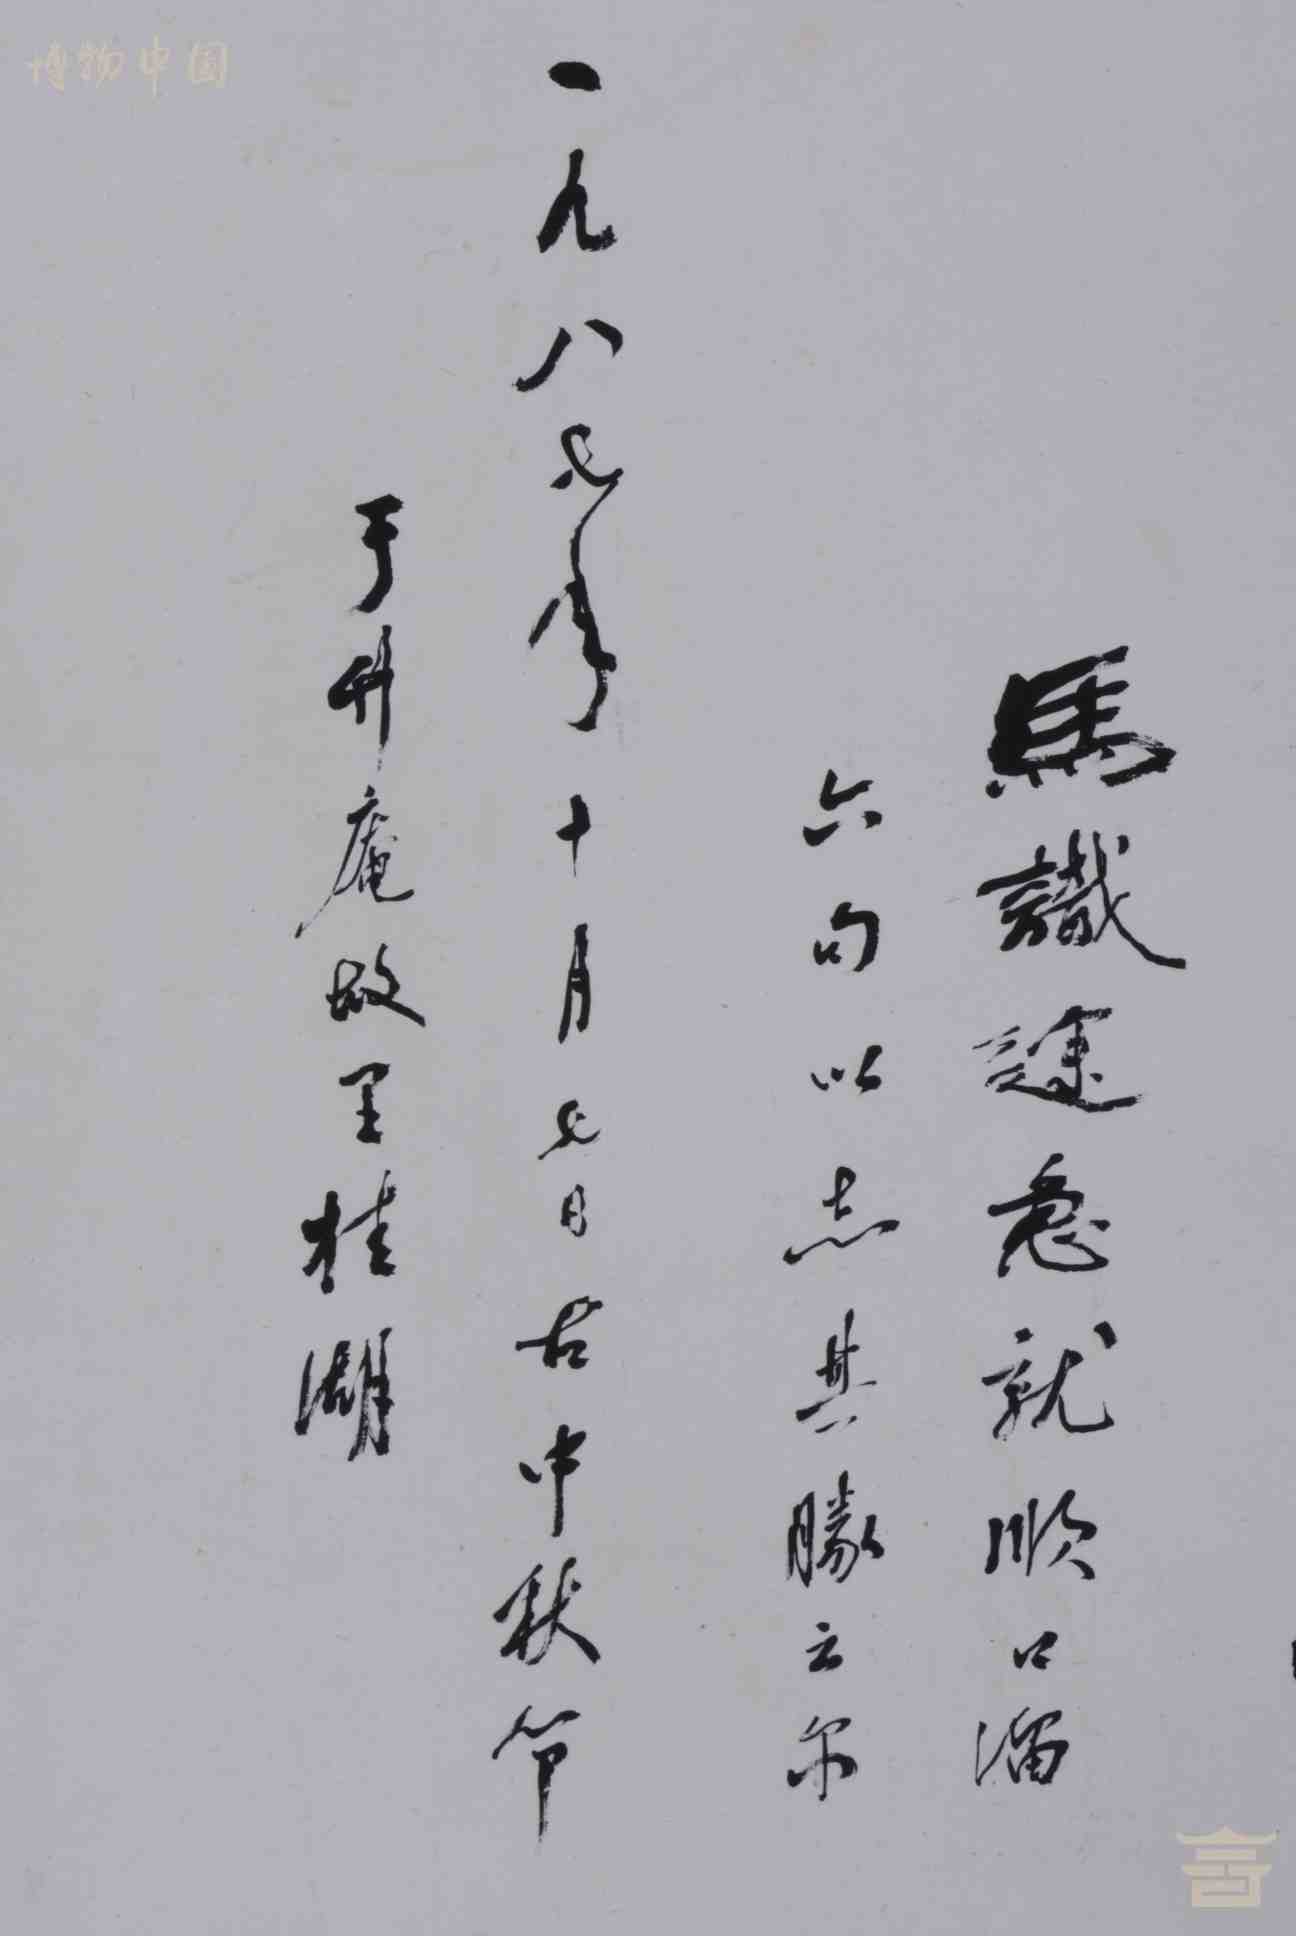 馬識途急就順口溜
六句以志其勝云尔
一九八七年十月七日古中秋节
于升庵故里桂湖
博物中国